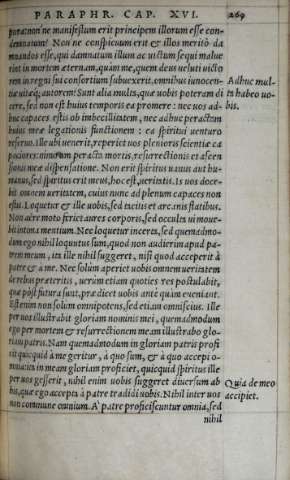 PARAPHR. CAP. XVI. 269
poterat: non ne manifestum erit principem illorum esse con-
demnatum? Non ne conspicuum erit & illos meritò da
mnandos esse, qui damnatum illum ac uictum sequi malue
rint in mortem æternam, quàm me, quem deus uelut uicto
rem in regni sui consortium subuexerit, omnibus innocen-
tiæ uitæq; autorem? Sunt alia multa, quæ uobis poteram di
cere, sed non est huius temporis ea promere: nec uos ad-
huc capaces estis ob imbecillitatem, nec adhuc peractum
huius meæ legationis functionem: ea spiritui uenturo
reseruo. Ille ubi uenerit, reperiet uos plenioris scientiæ ca
paciores: nimirum peracto mortis, resurrectionis et ascen
sionis meæ dispensatione. Non erit spiritus uanus aut hu-
manus, sed spiritus erit meus, hoc est, ueritatis. Is uos doce-
bit omnem ueritatem, cuius nunc ad plenum capaces non
estis. Loquetur & ille uobis, sed tacitis et arcanis flatibus.
Non aëre moto feriet aures corporis, sed occulta ui moue-
bit intima mentium. Nec loquetur inceres, sed quemadmo-
dum ego nihil loquutus sum, quod non audierim apud pa-
trem meum, ita ille nihil suggeret, nisi quod acceperit à
patre & à me. Nec solùm aperiet uobis omnem ueritatem
de rebus præteritis, uerùm etiam quoties res postulabit,
quæ pòst futura sunt, prædicet uobis antè quàm eueniant.
Est enim non solùm omnipotens, sed etiam omniscius. Ille
per uos illustrabit gloriam nominis mei, quemadmodum
ego per mortem & resurrectionem meam illustrabo glo-
riam patris. Nam quemadmodum in gloriam patris profi
cit quicquid à me geritur, à quo sum, & à quo accepi o-
mnia: ita in meam gloriam proficiet, quicquid spiritus ille
per uos gesserit, nihil enim uobis suggeret diuersum ab
bis, quæ ego accepta à patre tradidi uobis. Nihil inter nos
non commune omnium. A' patre proficiscuntur omnia, sed
nihil
Adhuc mul-
ta habeo uo-
bis.
Quia de meo
accipiet.